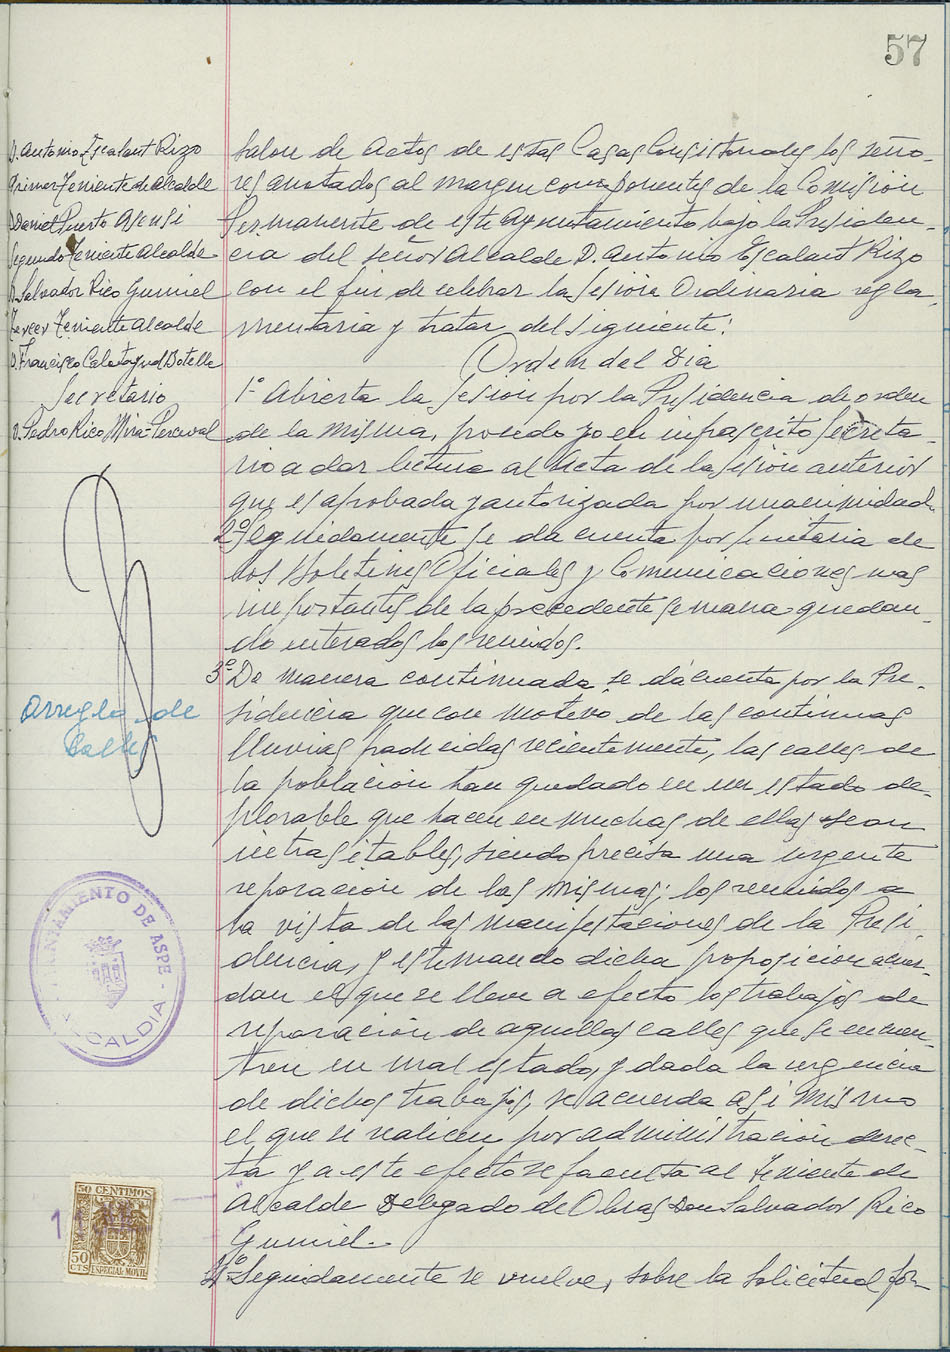 57
D. Antonio Escalant Rizo
Primer Teniente de Alcalde
D. Daniel Puerto Asensi
Segundo Teniente Alcalde
D. Salvador Rico Gumiel
Tercer Teniente Alcalde
D. Francisco Calatayud Botella
Secretario
D. Pedro Rico Mira-Perceval
Arreglo de
Calles
AYUNTAMIENTO DE ASPE
ALCALDIA
50 CENTIMOS
50
CTS ESPECIAL MOVIL
Salon de Actos de estas Casas Consistoriales los seño-
res anotados al margen componentes de la Comision
Permanente de este Ayuntamiento bajo la Presiden-
cia del señor Alcalde D. Antonio Escalant Rizo
con el fin de celebrar la sesion Ordinaria regla-
mentaria y tratar del siguiente:
Orden del Dia
1º Abierta la sesion por la Presidencia de orden
de la misma, procedo yo el infrascrito Secreta-
rio a dar lectura al Acta de la sesion anterior
que es aprobada y autorizada por unanimidad.
2º Seguidamente se da cuenta por Secretaria de
los Boletines Oficiales y Comunicaciones mas
importantes de la precedente semana quedan-
do enterados los reunidos.
3º De manera continuada, se da cuenta por la Pre-
sidencia que con motivo de las continuas
lluvias padecidas recientemente, las calles de
la población han quedado en un estado de-
plorable que hacen en muchas de ellas sean
intrasitables, siendo precisa una urgente
reparacion de las mismas; los reunidos a
la vista de las manifestaciones de la Presi-
dencia, y estimando dicha proposicion acuer-
dan el que se lleve a efecto los trabajos de
reparación de aquellas calles que se encuen-
tren en mal estado, y dada la urgencia
de dichos trabajos, se acuerda asi mismo
el que se realicen por administracion direc-
ta y a este efecto se faculta al Teniente de
Alcalde Delegado de Obras Don Salvador Rico
Gumiel.
4º Seguidamente se vuelve, sobre la solicitud for-